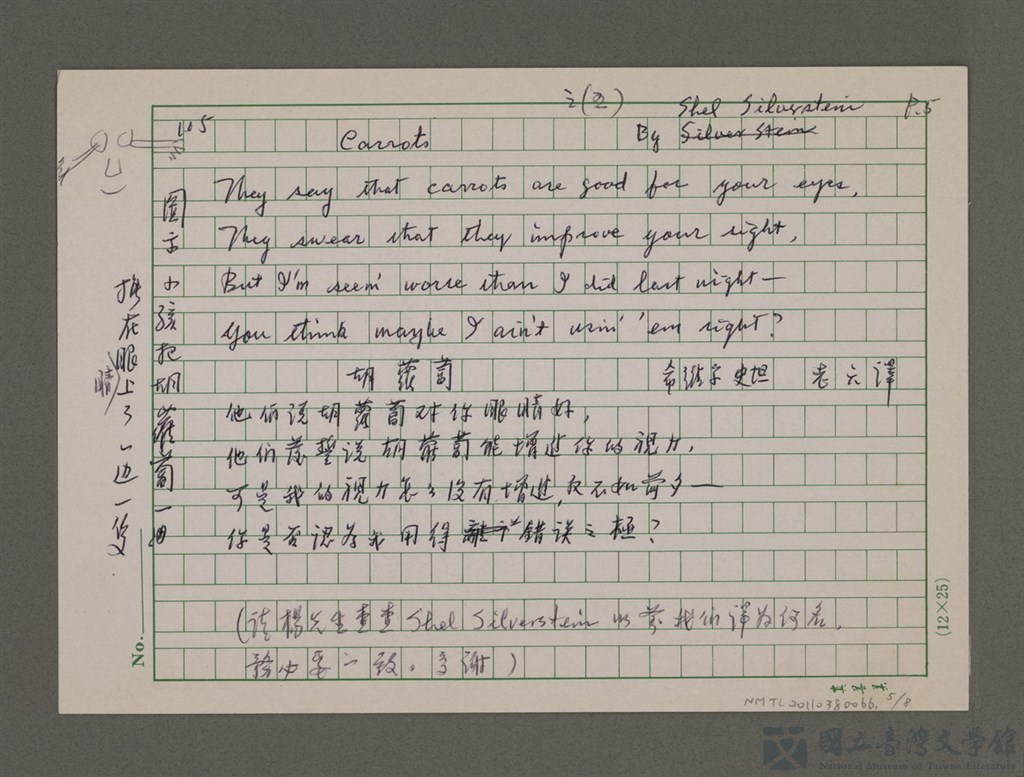 之(五)
Shel Silverstein P.5
Carrots By Silver Stein
They say that carrots are good for your eyes,
They swear that they improve your sight,
But I'm seein' worse than I did last night—
You think maybe I ain't usin' 'em right?
胡蘿蔔 希維爾史坦 老六譯
他们说胡蘿蔔对你眼睛好,
他们發誓说胡蘿蔔能增進你的視力,
可是我的視力怎么沒有增進,反不如前夕——
你是否認為我用得錯误之極?
(请楊先生查查 Shel Silverstein 以前我们譯为何名,
務必要一致。多谢)
圖示小孩把胡蘿蔔一曲
插在眼睛上了一边一隻
No.
(12×25)
NMTL20110380066, 5/8
國立臺灣文學館
National Museum of Taiwan Literature